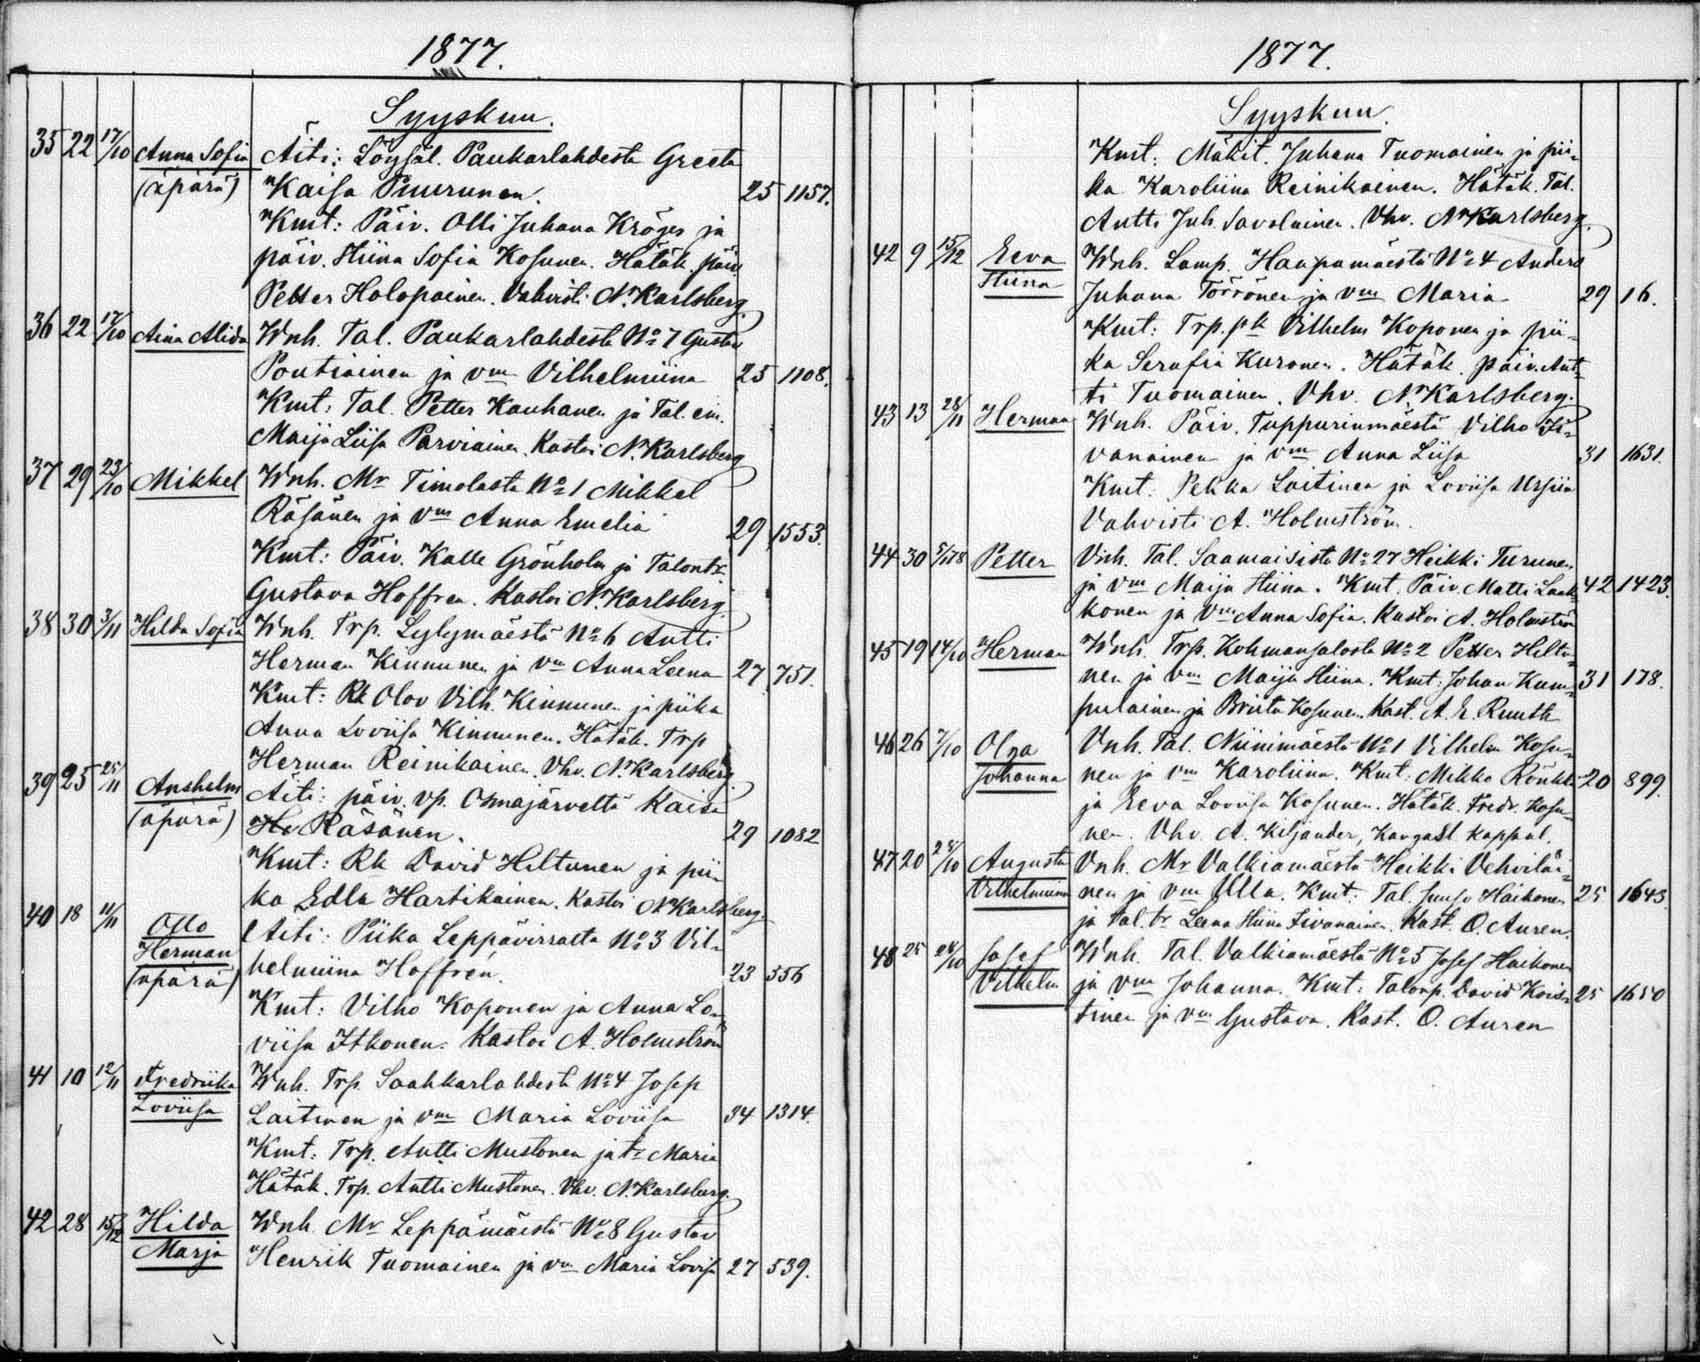 1877.
Syyskuu.
35 22 17/10 Anna Sofia Äiti: Löysäl. Paukarlahdesta Greeta
(äpärä) Kaisa Puurunen. 25 1157.
Kmt: Päiv. Olli Juhana Kröger ja
päiv. Hiina Sofia Kosunen. Hätäk. päiv
Petter Holopainen. Vahvisti N. Karlsberg.
36 22 17/10 Aina Alida Wnh. Tal. Paukarlahdesta No 7 Gustav
Pontiainen ja vm Vilhelmiina 25 1108.
Kmt: Tal. Petter Kauhanen ja Tal. em.
Maija Liisa Parviainen. Kastoi N. Karlsberg
37 29 23/10 Mikkel Wnh. Mr Timolasta No 1 Mikkel
Räsänen ja vm Anna Emelia 29 1553.
Kmt: Päiv. Kalle Grönholm ja Talontr
Gustava Hoffren. Kastoi N. Karlsberg.
38 30 3/11 Hilda Sofia Wnh. Trp. Lylymäestä No 6 Antti
Herman Kinnunen ja vm Anna Leena 27 751.
Kmt: Rk Olov Vilh. Kinnunen ja piika
Anna Loviisa Kinnunen. Hätäk. Trp
Herman Reinikainen. Vhv. N. Karlsberg.
39 25 25/11 Anshelm Äiti: päiv. vp. Osmajärveltä Kaisa
(äpärä) Räsänen. 29 1082
Kmt: Rk David Hiltunen ja pii-
ka Edla Hartikainen. Kastoi N. Karlsberg.
40 18 11/11 Otto Äiti: Piika Leppävirralta No 3 Vil-
Herman
(äpärä) helmiina Hoffrén. 23 556
Kmt: Vilho Koponen ja Anna Lo-
viisa Itkonen. Kastoi A. Holmström
41 10 12/11 Fredriika Wnh. Trp. Saahkarlahdesta No 4 Josep
Loviisa Laitinen ja vm Maria Loviisa 34 1314.
Kmt: Trp. Antti Mustonen ja tr Maria
Hätäk. Trp. Antti Mustonen. Vhv. N. Karlsberg.
42 28 15/12 Hilda Wnh. Mr Leppämäestä No 8 Gustav
Marja Henrik Tuomainen ja vm Maria Lovisa 27 539.
1877.
Syyskuu.
Kmt: Mäkit. Juhana Tuomainen ja pii-
ka Karoliina Reinikainen. Hätäk. Tal.
Antti Juh. Savolainen. Vhv. N. Karlsberg.
42 9 15/12 Eeva Wnh. Lamp. Haapamäestä No 4 Anders
Hiina Juhana Törrönen ja vm Maria 29 16.
Kmt: Trp. pk Vilhelm Koponen ja pii-
ka Serafia Kuronen. Hätäk. päiv. Ant-
ti Tuomainen. Vhv. N. Karlsberg.
43 13 28/11 Herman Wnh. Päiv. Tuppurinmäestä Vilho Ii-
vanainen ja vm Anna Liisa 31 1631.
Kmt: Pekka Laitinen ja Loviisa Ursiin
Vahvisti A. Holmström.
44 30 5/1 78 Petter Vnh. Tal. Saamaisista No 27 Heikki Turunen
ja vm Maija Hiina. Kmt. Päiv. Matti Laak- 42 1423.
konen ja vm Anna Sofia. Kastoi A. Holmström
45 19 14/10 Herman Wnh. Trp. Kohmansalosta No 2 Petter Hiltu-
nen ja vm Maija Hiina. Kmt: Johan Kum- 31 178.
pulainen ja Briita Kosunen. Kast. A. E. Ruuth
46 26 7/10 Olga Vnh. Tal. Niinimäestä No 1 Vilhelm Kosu-
Johanna nen ja vm Karoliina. Kmt: Mikko Rönkkö 20 899.
ja Eeva Loviisa Kosunen. Hätäk. Fredr. Kosu-
nen. Vhv. A. Kiljander, Kangasl. Kappal.
47 20 28/10 Augusta Vnh. Mr Valkiamäestä Heikki Vehviläi-
Vilhelmiina nen ja vm Ulla. Kmt: Tal. Juuso Häikönen 25 1643.
ja Tal. tr Leena Hiina Iivanainen. Kast. O. Auren.
48 25 28/10 Josef Wnh. Tal. Valkiamäestä No 5 Josef Häikönen
Vilhelm ja vm Johanna. Kmt: Talonp. David Kois- 25 1650
tinen ja vm Gustava. Kast. O. Auren